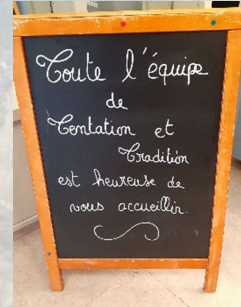 Toute l'équipe
de
Tentation et
Tradition
est heureuse de
vous accueillir.